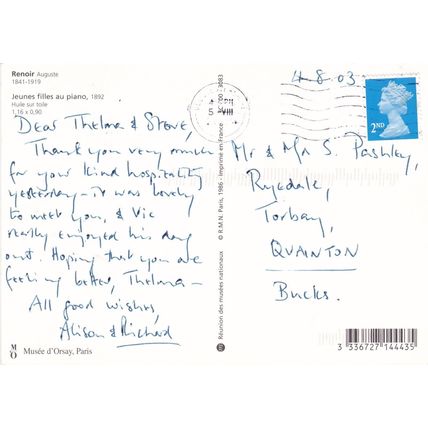 Renoir Auguste
1841-1919
Jeunes filles au piano, 1892
Huile sur toile
1,16 x 0,90
4.8.03
2ND
Dear Thelma & Steve,
Thank you very much
for your kind hospitality
yesterday - it was lovely
to meet you, & Vic
really enjoyed his day
out. Hoping that you are
feeling better, Thelma -
All good wishes,
Alison & Richard
Mr & Mrs S. Pashley,
Ryedale,
Torbay,
QUAINTON
Bucks.
© R.M.N. Paris, 1986 - Imprimé en France
Réunion des musées nationaux
MO
Musée d'Orsay, Paris
3 336727 144435